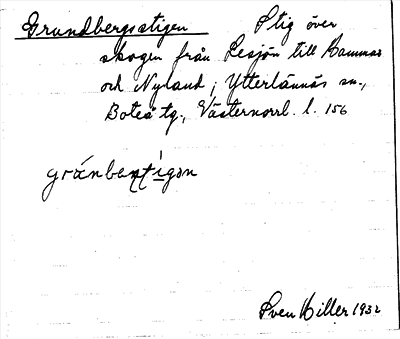 Grundbergsstigen Stig över
skogen från Lesjön till Hammar
och Nyland; Ytterlännäs sn.,
Boteå tg., Västernorrl. l. 156
Sven Hiller 1932